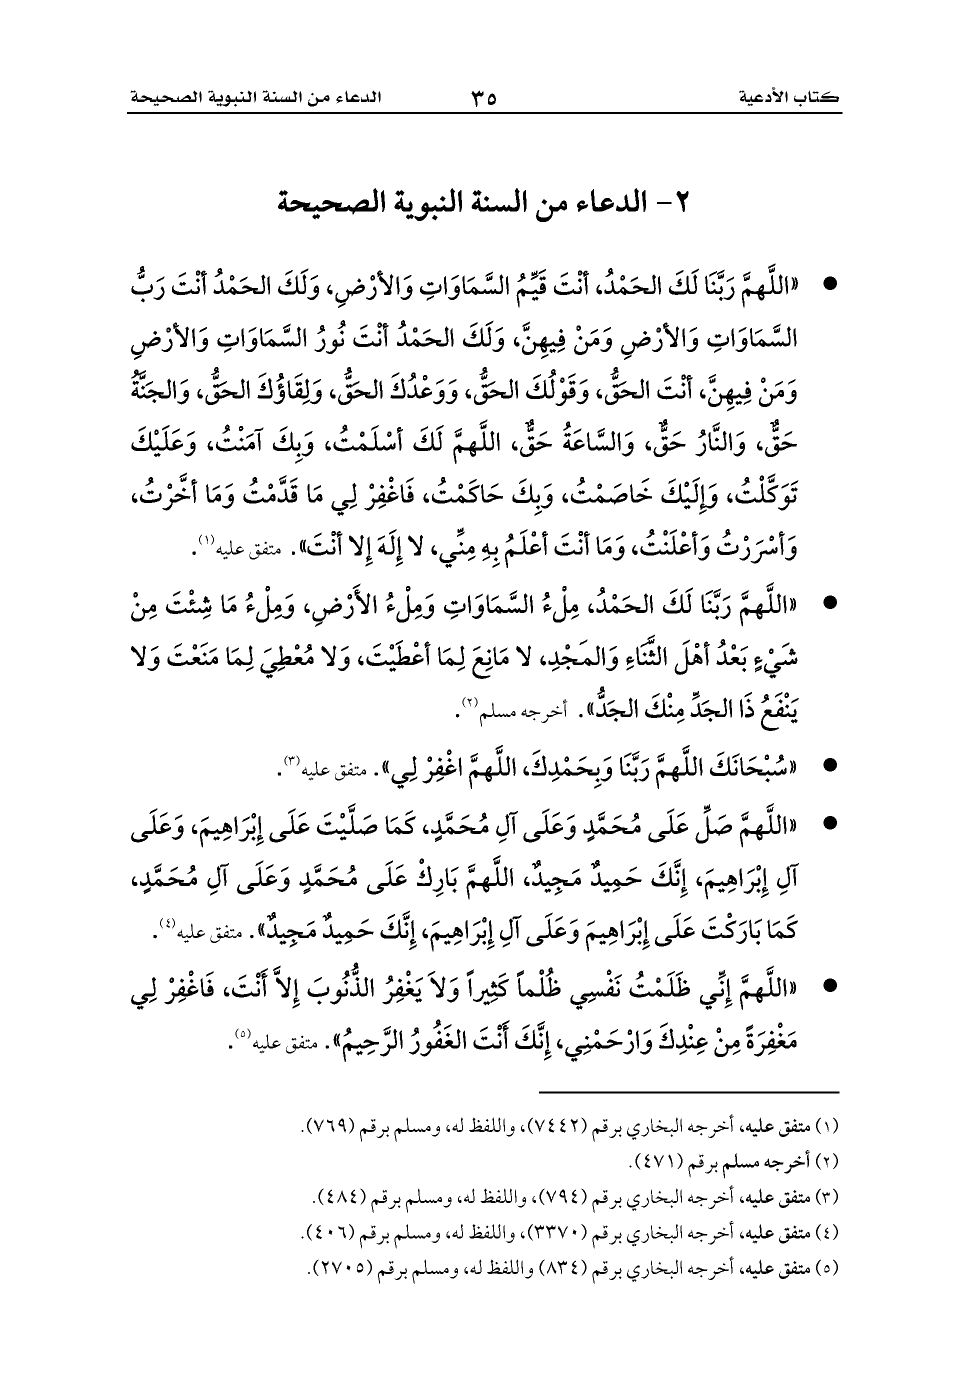 كتاب الأدعية ٣٥ الدعاء من السنة النبوية الصحيحة
٢- الدعاء من السنة النبوية الصحيحة
● «اللَّهمَّ رَبَّنَا لَكَ الحَمْدُ، أنْتَ قَيِّمُ السَّمَاوَاتِ وَالأرْضِ، وَلَكَ الحَمْدُ أنْتَ رَبُّ
السَّمَاوَاتِ وَالأرْضِ وَمَنْ فِيهِنَّ، وَلَكَ الحَمْدُ أنْتَ نُورُ السَّمَاوَاتِ وَالأرْضِ
وَمَنْ فِيهِنَّ، أنْتَ الحَقُّ، وَقَوْلُكَ الحَقُّ، وَوَعْدُكَ الحَقُّ، وَلِقَاؤُكَ الحَقُّ، وَالجَنَّةُ
حَقٌّ، وَالنَّارُ حَقٌّ، وَالسَّاعَةُ حَقٌّ، اللَّهمَّ لَكَ أسْلَمْتُ، وَبِكَ آمَنْتُ، وَعَلَيْكَ
تَوَكَّلْتُ، وَإِلَيْكَ خَاصَمْتُ، وَبِكَ حَاكَمْتُ، فَاغْفِرْ لِي مَا قَدَّمْتُ وَمَا أخَّرْتُ،
وَأسْرَرْتُ وَأعْلَنْتُ، وَمَا أنْتَ أعْلَمُ بِهِ مِنِّي، لا إِلَهَ إِلا أنْتَ». متفق عليه(١).
● «اللَّهمَّ رَبَّنَا لَكَ الحَمْدُ، مِلْءُ السَّمَاوَاتِ وَمِلْءُ الأَرْضِ، وَمِلْءُ مَا شِئْتَ مِنْ
شَيْءٍ بَعْدُ أهْلَ الثَّنَاءِ وَالمَجْدِ، لا مَانِعَ لِمَا أعْطَيْتَ، وَلا مُعْطِيَ لِمَا مَنَعْتَ وَلا
يَنْفَعُ ذَا الجَدِّ مِنْكَ الجَدُّ». أخرجه مسلم(٢).
● «سُبْحَانَكَ اللَّهمَّ رَبَّنَا وَبِحَمْدِكَ، اللَّهمَّ اغْفِرْ لِي». متفق عليه(٣).
● «اللَّهمَّ صَلِّ عَلَى مُحَمَّدٍ وَعَلَى آلِ مُحَمَّدٍ، كَمَا صَلَّيْتَ عَلَى إِبْرَاهِيمَ، وَعَلَى
آلِ إِبْرَاهِيمَ، إِنَّكَ حَمِيدٌ مَجِيدٌ، اللَّهمَّ بَارِكْ عَلَى مُحَمَّدٍ وَعَلَى آلِ مُحَمَّدٍ،
كَمَا بَارَكْتَ عَلَى إِبْرَاهِيمَ وَعَلَى آلِ إِبْرَاهِيمَ، إِنَّكَ حَمِيدٌ مَجِيدٌ». متفق عليه(٤).
● «اللَّهمَّ إِنِّي ظَلَمْتُ نَفْسِي ظُلْماً كَثِيراً وَلاَ يَغْفِرُ الذُّنُوبَ إِلاَّ أَنْتَ، فَاغْفِرْ لِي
مَغْفِرَةً مِنْ عِنْدِكَ وَارْحَمْنِي، إِنَّكَ أَنْتَ الغَفُورُ الرَّحِيمُ». متفق عليه(٥).
(١) متفق عليه، أخرجه البخاري برقم (٧٤٤٢)، واللفظ له، ومسلم برقم (٧٦٩).
(٢) أخرجه مسلم برقم (٤٧١).
(٣) متفق عليه، أخرجه البخاري برقم (٧٩٤)، واللفظ له، ومسلم برقم (٤٨٤).
(٤) متفق عليه، أخرجه البخاري برقم (٣٣٧٠)، واللفظ له، ومسلم برقم (٤٠٦).
(٥) متفق عليه، أخرجه البخاري برقم (٨٣٤) واللفظ له، ومسلم برقم (٢٧٠٥).